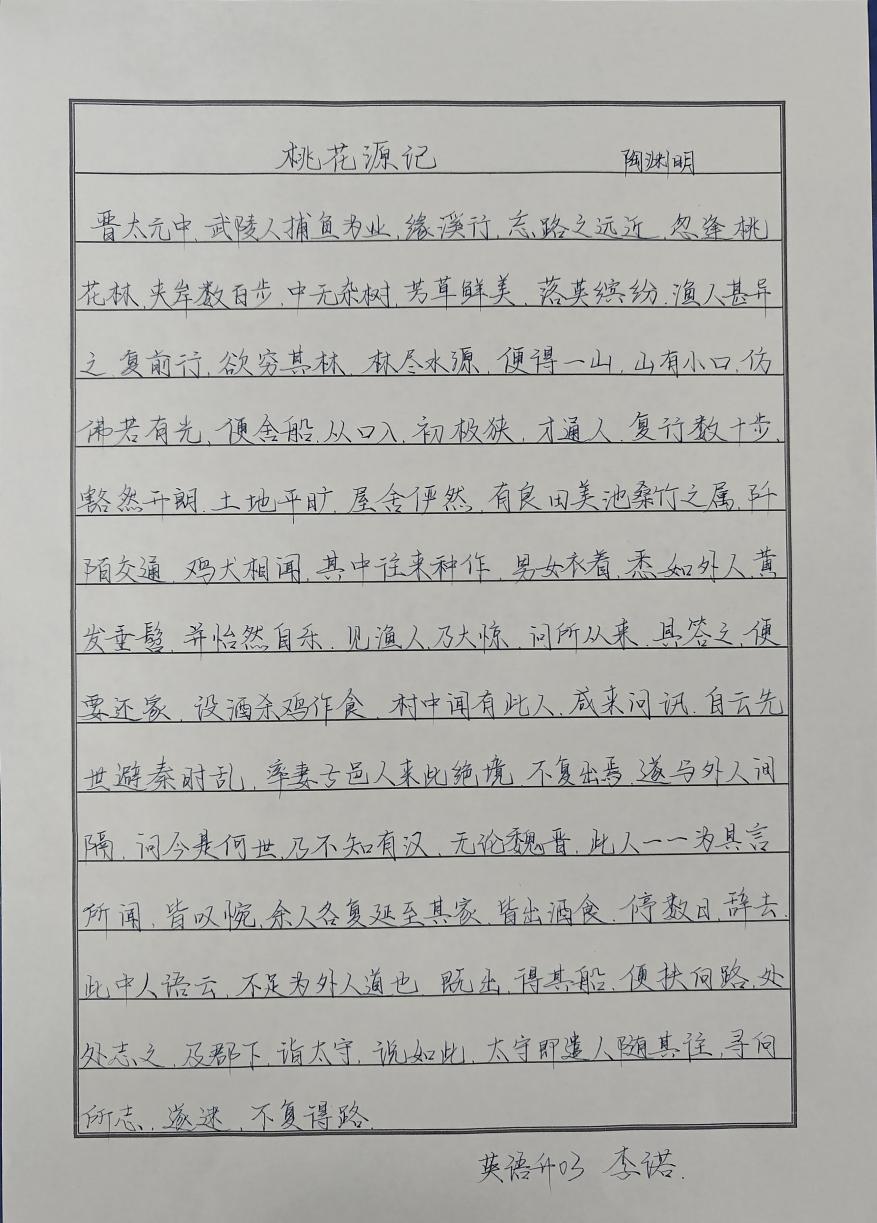 桃花源记 陶渊明
晋太元中,武陵人捕鱼为业,缘溪行,忘路之远近,忽逢桃
花林,夹岸数百步,中无杂树,芳草鲜美,落英缤纷,渔人甚异
之,复前行,欲穷其林,林尽水源,便得一山,山有小口,仿
佛若有光,便舍船,从口入,初极狭,才通人,复行数十步,
豁然开朗,土地平旷,屋舍俨然,有良田美池桑竹之属,阡
陌交通,鸡犬相闻,其中往来种作,男女衣着,悉如外人,黄
发垂髫,并怡然自乐,见渔人,乃大惊,问所从来,具答之,便
要还家,设酒杀鸡作食,村中闻有此人,咸来问讯,自云先
世避秦时乱,率妻子邑人来此绝境,不复出焉,遂与外人间
隔,问今是何世,乃不知有汉,无论魏晋,此人一一为具言
所闻,皆叹惋,余人各复延至其家,皆出酒食,停数日,辞去,
此中人语云,不足为外人道也,既出,得其船,便扶向路,处
处志之,及郡下,诣太守,说如此,太守即遣人随其往,寻向
所志,遂迷,不复得路.
英语升03 李诺.